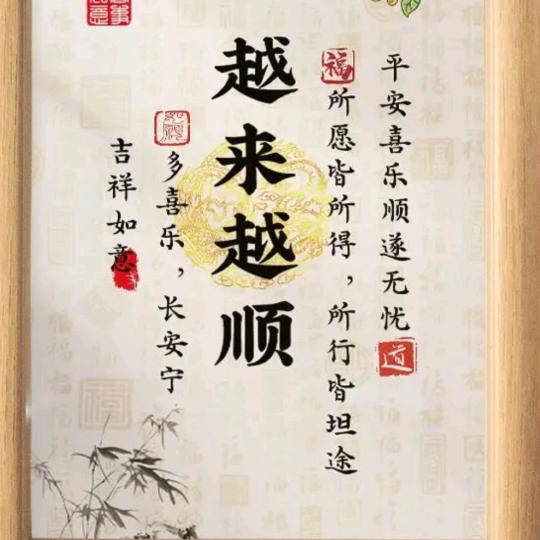 平安喜乐顺遂无忧
道
福
所愿皆所得，所行皆坦途
越来越顺
多喜乐，长安宁
吉祥如意